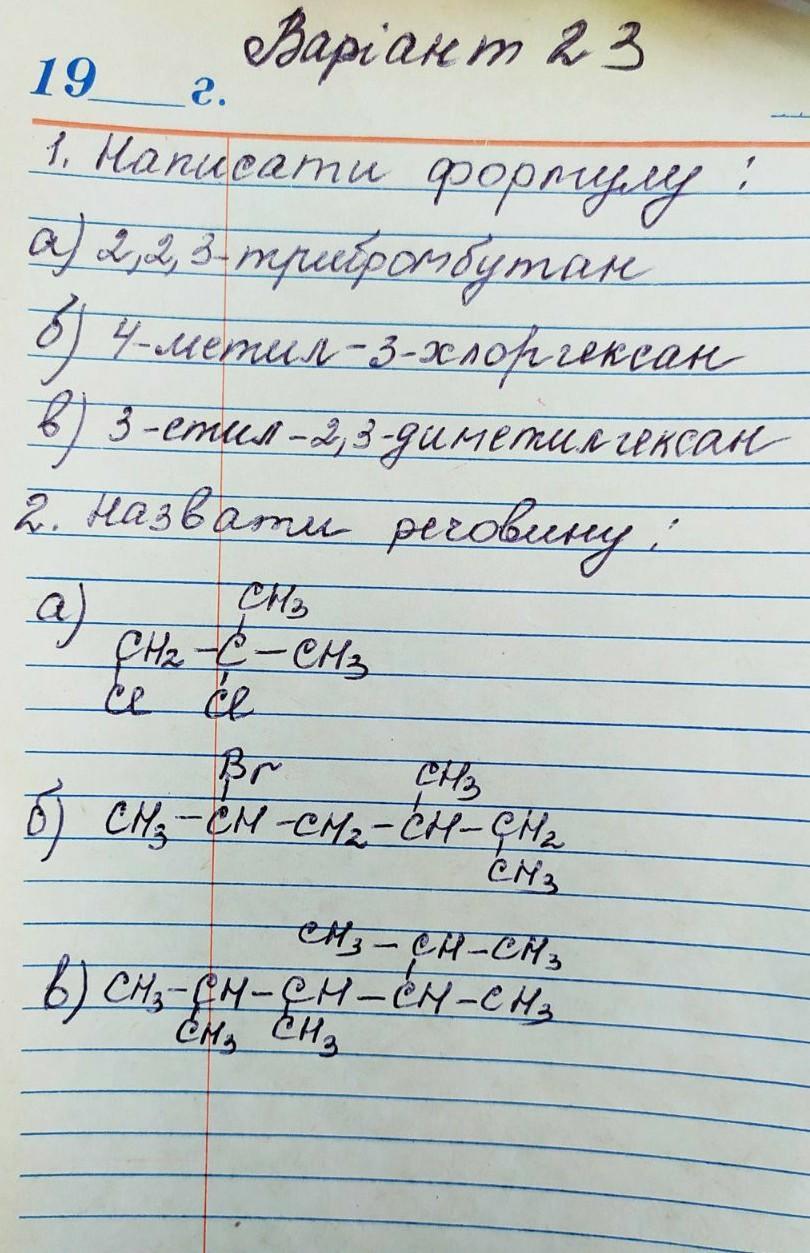 Варіант 23
19___г.
1. Написати формулу:
а) 2,2,3-трибромбутан
б) 4-метил-3-хлоргексан
в) 3-етил-2,3-диметилгексан
2. Назвати речовину:
а)
CH3
CH2 - C - CH3
Cl Cl
Br CH3
б) CH3 - CH - CH2 - CH - CH2
CH3
CH3 - CH - CH3
в) CH3 - CH - CH - CH - CH3
CH3 CH3